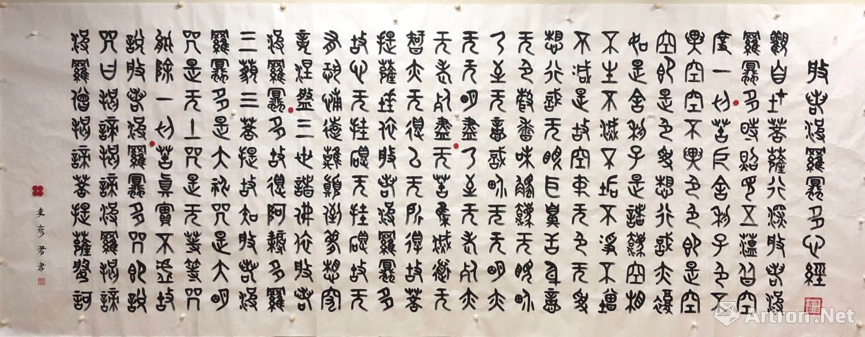 般若波羅蜜多心經
觀自在菩薩行深般若波
羅蜜多時照見五蘊皆空
度一切苦厄舍利子色不
異空空不異色色即是空
空即是色受想行識亦復
如是舍利子是諸法空相
不生不滅不垢不淨不增
不減是故空中无色无受
想行識无眼耳鼻舌身意
无色聲香味觸法无眼界
乃至无意識界无无明亦
无无明盡乃至无老死亦
无老死盡无苦集滅道无
智亦无得以无所得故菩
提薩埵依般若波羅蜜多
故心无罣礙无罣礙故无
有恐怖遠離顛倒夢想究
竟涅槃三世諸佛依般若
波羅蜜多故得阿耨多羅
三藐三菩提故知般若波
羅蜜多是大神咒是大明
咒是无上咒是无等等咒
能除一切苦真實不虛故
說般若波羅蜜多咒即說
咒曰揭諦揭諦波羅揭諦
波羅僧揭諦菩提薩婆訶
Artron.Net